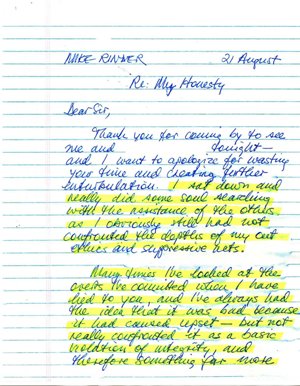 MIKE RINDER 21 August
Re: My Honesty
Dear Sir,
Thank you for coming by to see
me and tonight —
and I want to apologize for wasting
your time and creating further
enturbulation. I sat down and
really did some soul searching
with the assistance of the others,
as I obviously still had not
confronted the depths of my out
ethics and suppressive acts.
Many times I've looked at the
overts I've committed when I have
lied to you, and I've always had
the idea that it was bad because
it had caused upset — but not
really confronted it as a basic
violation of integrity, and
therefore something far more